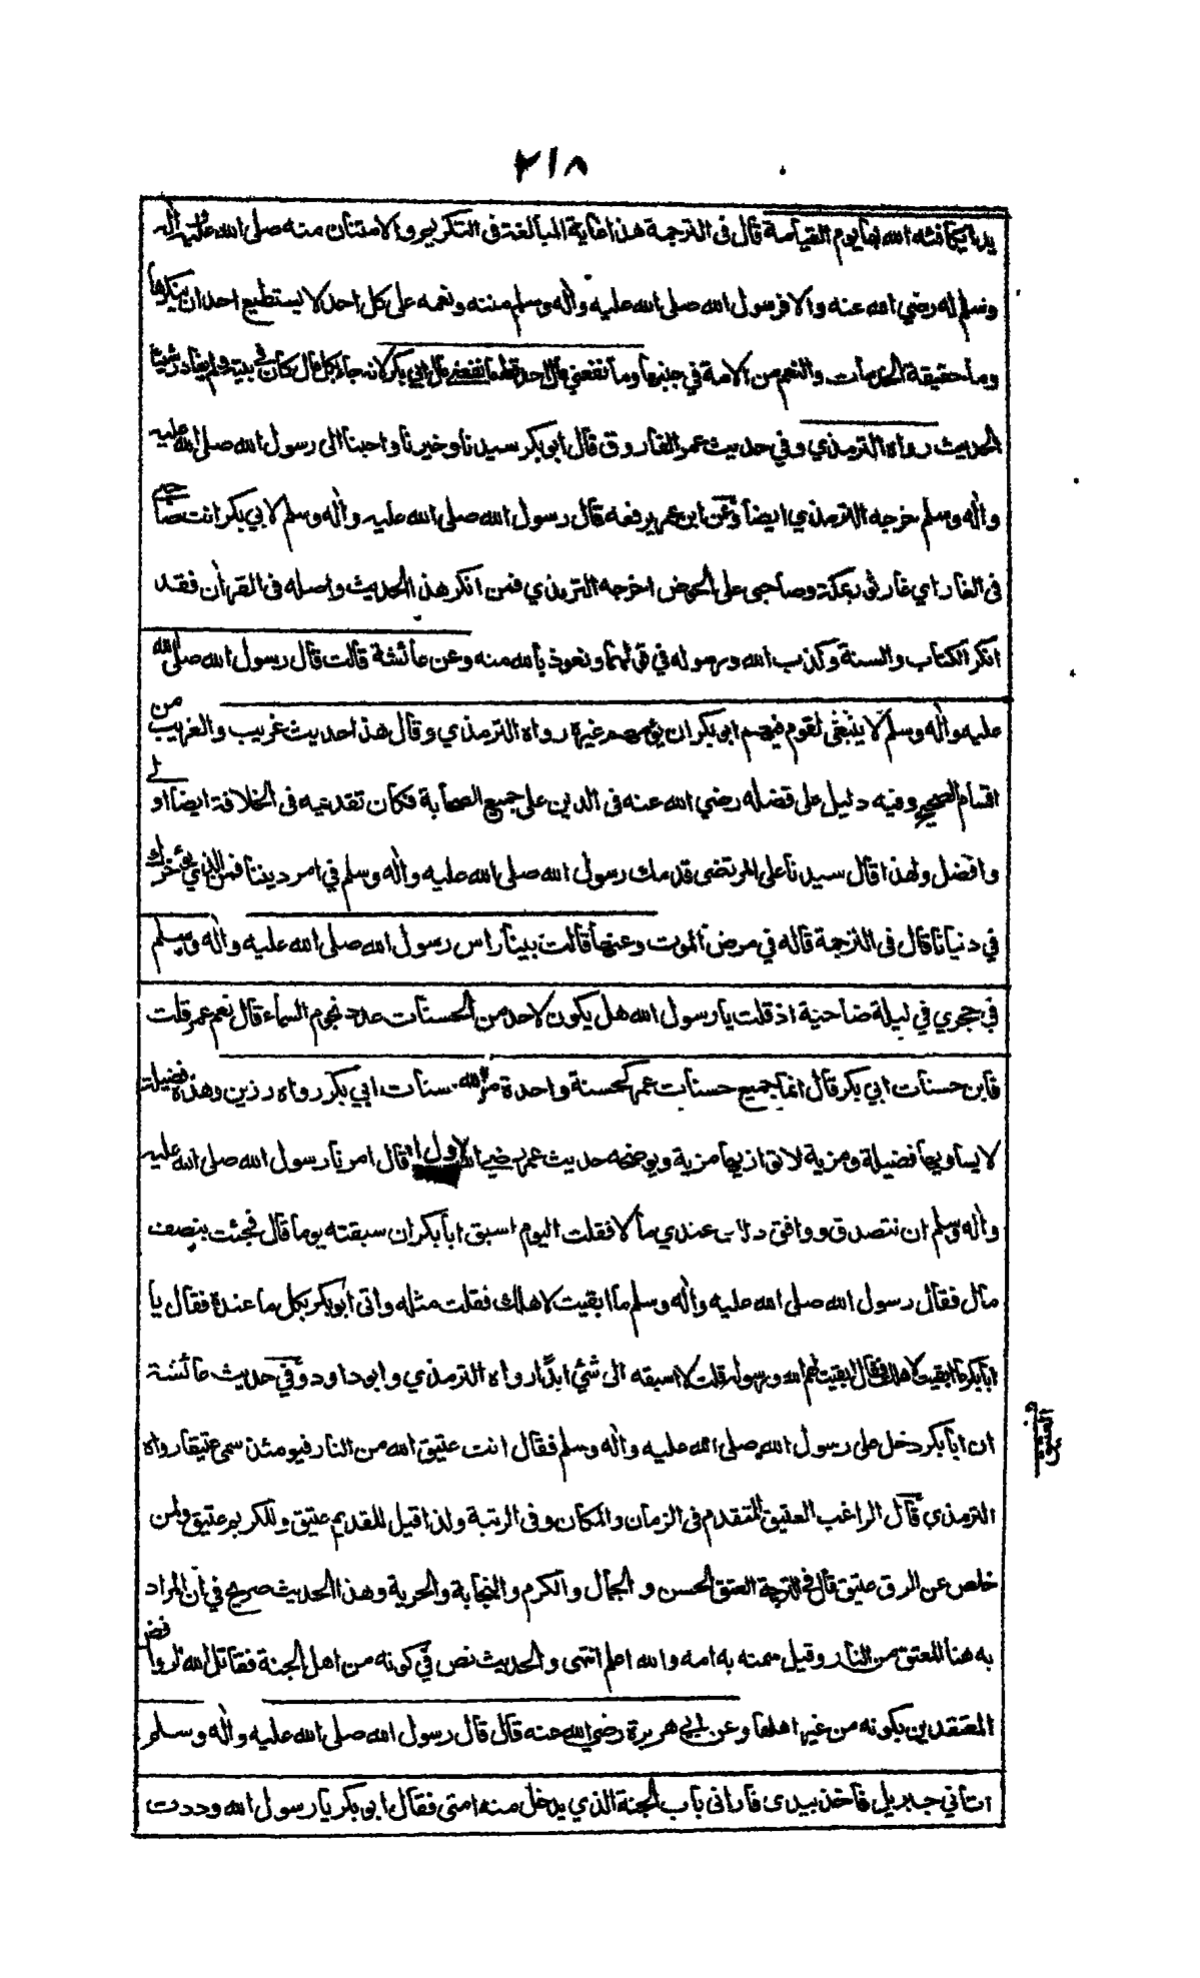 ٢١٨
يدا يكافئه الله بها يوم القيامة قال في الترجمة هذا غاية المبالغة في التكريم والامتنان منه صلى الله عليه وآله
وسلم له رضي الله عنه والا فرسول الله صلى الله عليه وآله وسلم مننه ونعمه على كل احد لا يستطيع احد ان ينكرها
وما حقيقة الخدمات والنعم من الامة في جنبها وما نفعني مال احد قط ما نفعني مال ابي بكر لانه جاء بكل مال كان في بيته ولم يغادر شيئا
الحديث رواه الترمذي وفي حديث عمر الفاروق قال ابو بكر سيدنا وخيرنا واحبنا الى رسول الله صلى الله عليه
وآله وسلم خرجه الترمذي ايضا وعن ابن عمر يرفعه قال رسول الله صلى الله عليه وآله وسلم لابي بكر انت صاحبي
في الغار اي غار ثور بمكة وصاحبي على الحوض اخرجه الترمذي فمن انكر هذا الحديث واصله في القرآن فقد
انكر الكتاب والسنة وكذب الله ورسوله في قولهما ونعوذ بالله منه وعن عائشة قالت قال رسول الله صلى الله
عليه وآله وسلم لا ينبغي لقوم فيهم ابو بكر ان يؤمهم غيره رواه الترمذي وقال هذا حديث غريب والغريب من
اقسام الصحيح وفيه دليل على فضله رضي الله عنه في الدين على جميع الصحابة فكان تقديمه في الخلافة ايضا اولى
وافضل ولهذا قال سيدنا على المرتضى قدمك رسول الله صلى الله عليه وآله وسلم في امر ديننا فمن الذي يؤخرك
في دنيانا قال في الترجمة قاله في مرض الموت وعنها قالت بينا راس رسول الله صلى الله عليه وآله وسلم
في حجري في ليلة ضاحية اذ قلت يا رسول الله هل يكون لاحد من الحسنات عدد نجوم السماء قال نعم عمر قلت
فاين حسنات ابي بكر قال انما جميع حسنات عمر كحسنة واحدة من حسنات ابي بكر رواه رزين وهذه فضيلة
لا يساويها فضيلة ومزية لا توازيها مزية ويوضحه حديث عمر رضي الله قال امرنا رسول الله صلى الله عليه
وآله وسلم ان نتصدق ووافق ذلك عندي مالا فقلت اليوم اسبق ابا بكر ان سبقته يوما قال فجئت بنصف
مال فقال رسول الله صلى الله عليه وآله وسلم ما ابقيت لاهلك فقلت مثله واتى ابو بكر بكل ما عنده فقال يا
ابا بكر ما ابقيت لاهلك فقال ابقيت لهم الله ورسوله قلت لا اسبقه الى شئ ابدا رواه الترمذي وابو داود وفي حديث عائشة
ان ابا بكر دخل على رسول الله صلى الله عليه وآله وسلم فقال انت عتيق الله من النار فيومئذ سمي عتيقا رواه
الترمذي قال الراغب العتيق المتقدم في الزمان والمكان وفي الرتبة ولذا قيل للقديم عتيق وللكريم عتيق ولمن
خلص عن الرق عتيق قال في الترجمة العتق الحسن والجمال والكرم والنجابة والحرية وهذا الحديث صريح في ان المراد
به هنا المعتق من النار وقيل سمته به امه والله اعلم انتهى والحديث نص في كونه من اهل الجنة فقاتل الله الروافض
المعتقدين بكونه من غير اهلها وعن ابي هريرة رضي الله عنه قال قال رسول الله صلى الله عليه وآله وسلم
اتاني جبريل فاخذ بيدي فاراني باب الجنة الذي يدخل منه امتي فقال ابو بكر يا رسول الله وددت